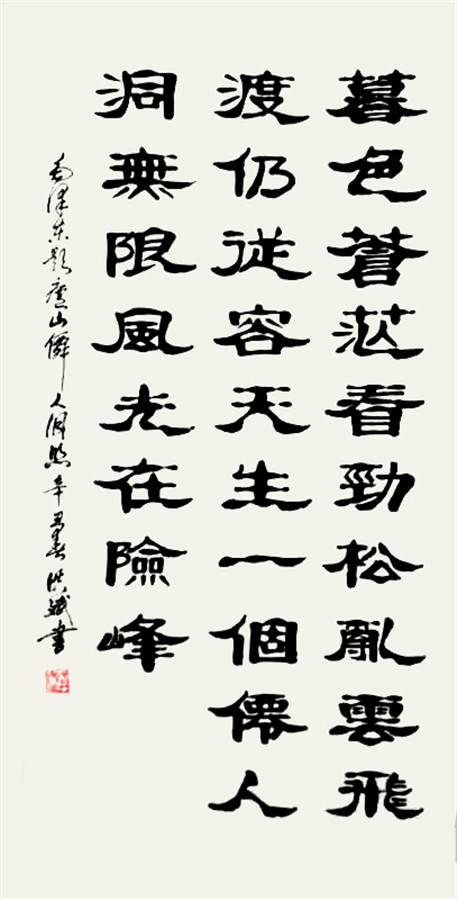 暮色蒼茫看勁松亂雲飛
渡仍從容天生一個僊人
洞無限風光在險峰
毛澤東題廬山僊人洞照辛丑春洪斌書